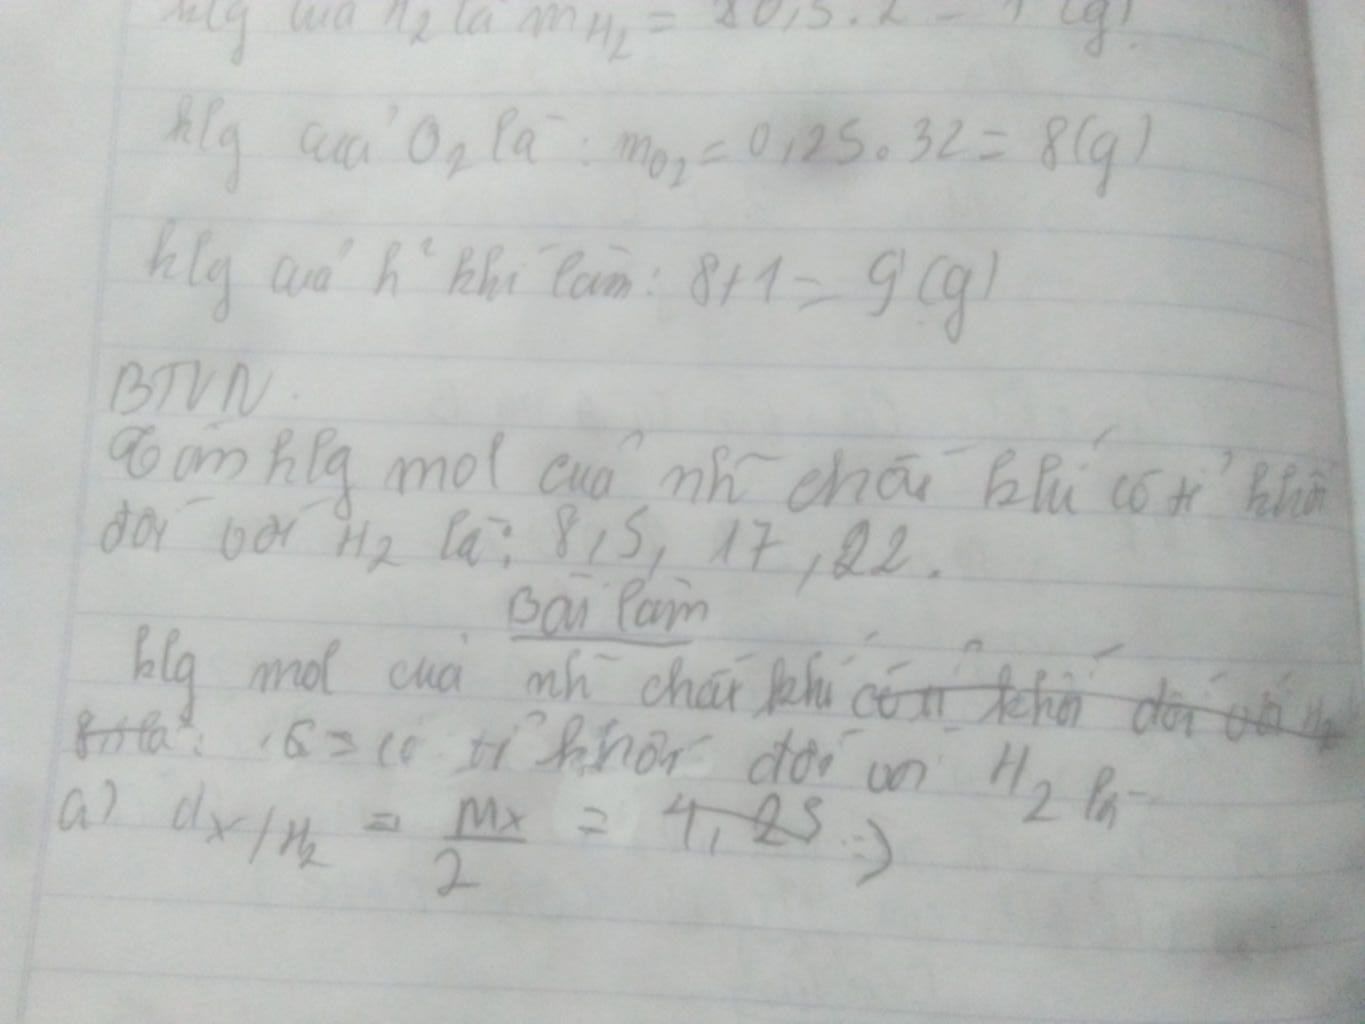 klg của H2 là mH2 = 0,5.2 = 1 (g)
klg của O2 là : mO2 = 0,25.32 = 8(g)
klg của h² khí làm: 8+1 = 9 (g)
BTVN.
Tìm klg mol của nh~ chất khí có tỉ khối
đối với H2 là: 8,5, 17, 22.
Bài làm
klg mol của nh~ chất khí có tỉ khối đối với H2
có tỉ khối đối với H2 là
a) dx/H2 = Mx/2 = 4,25 =>